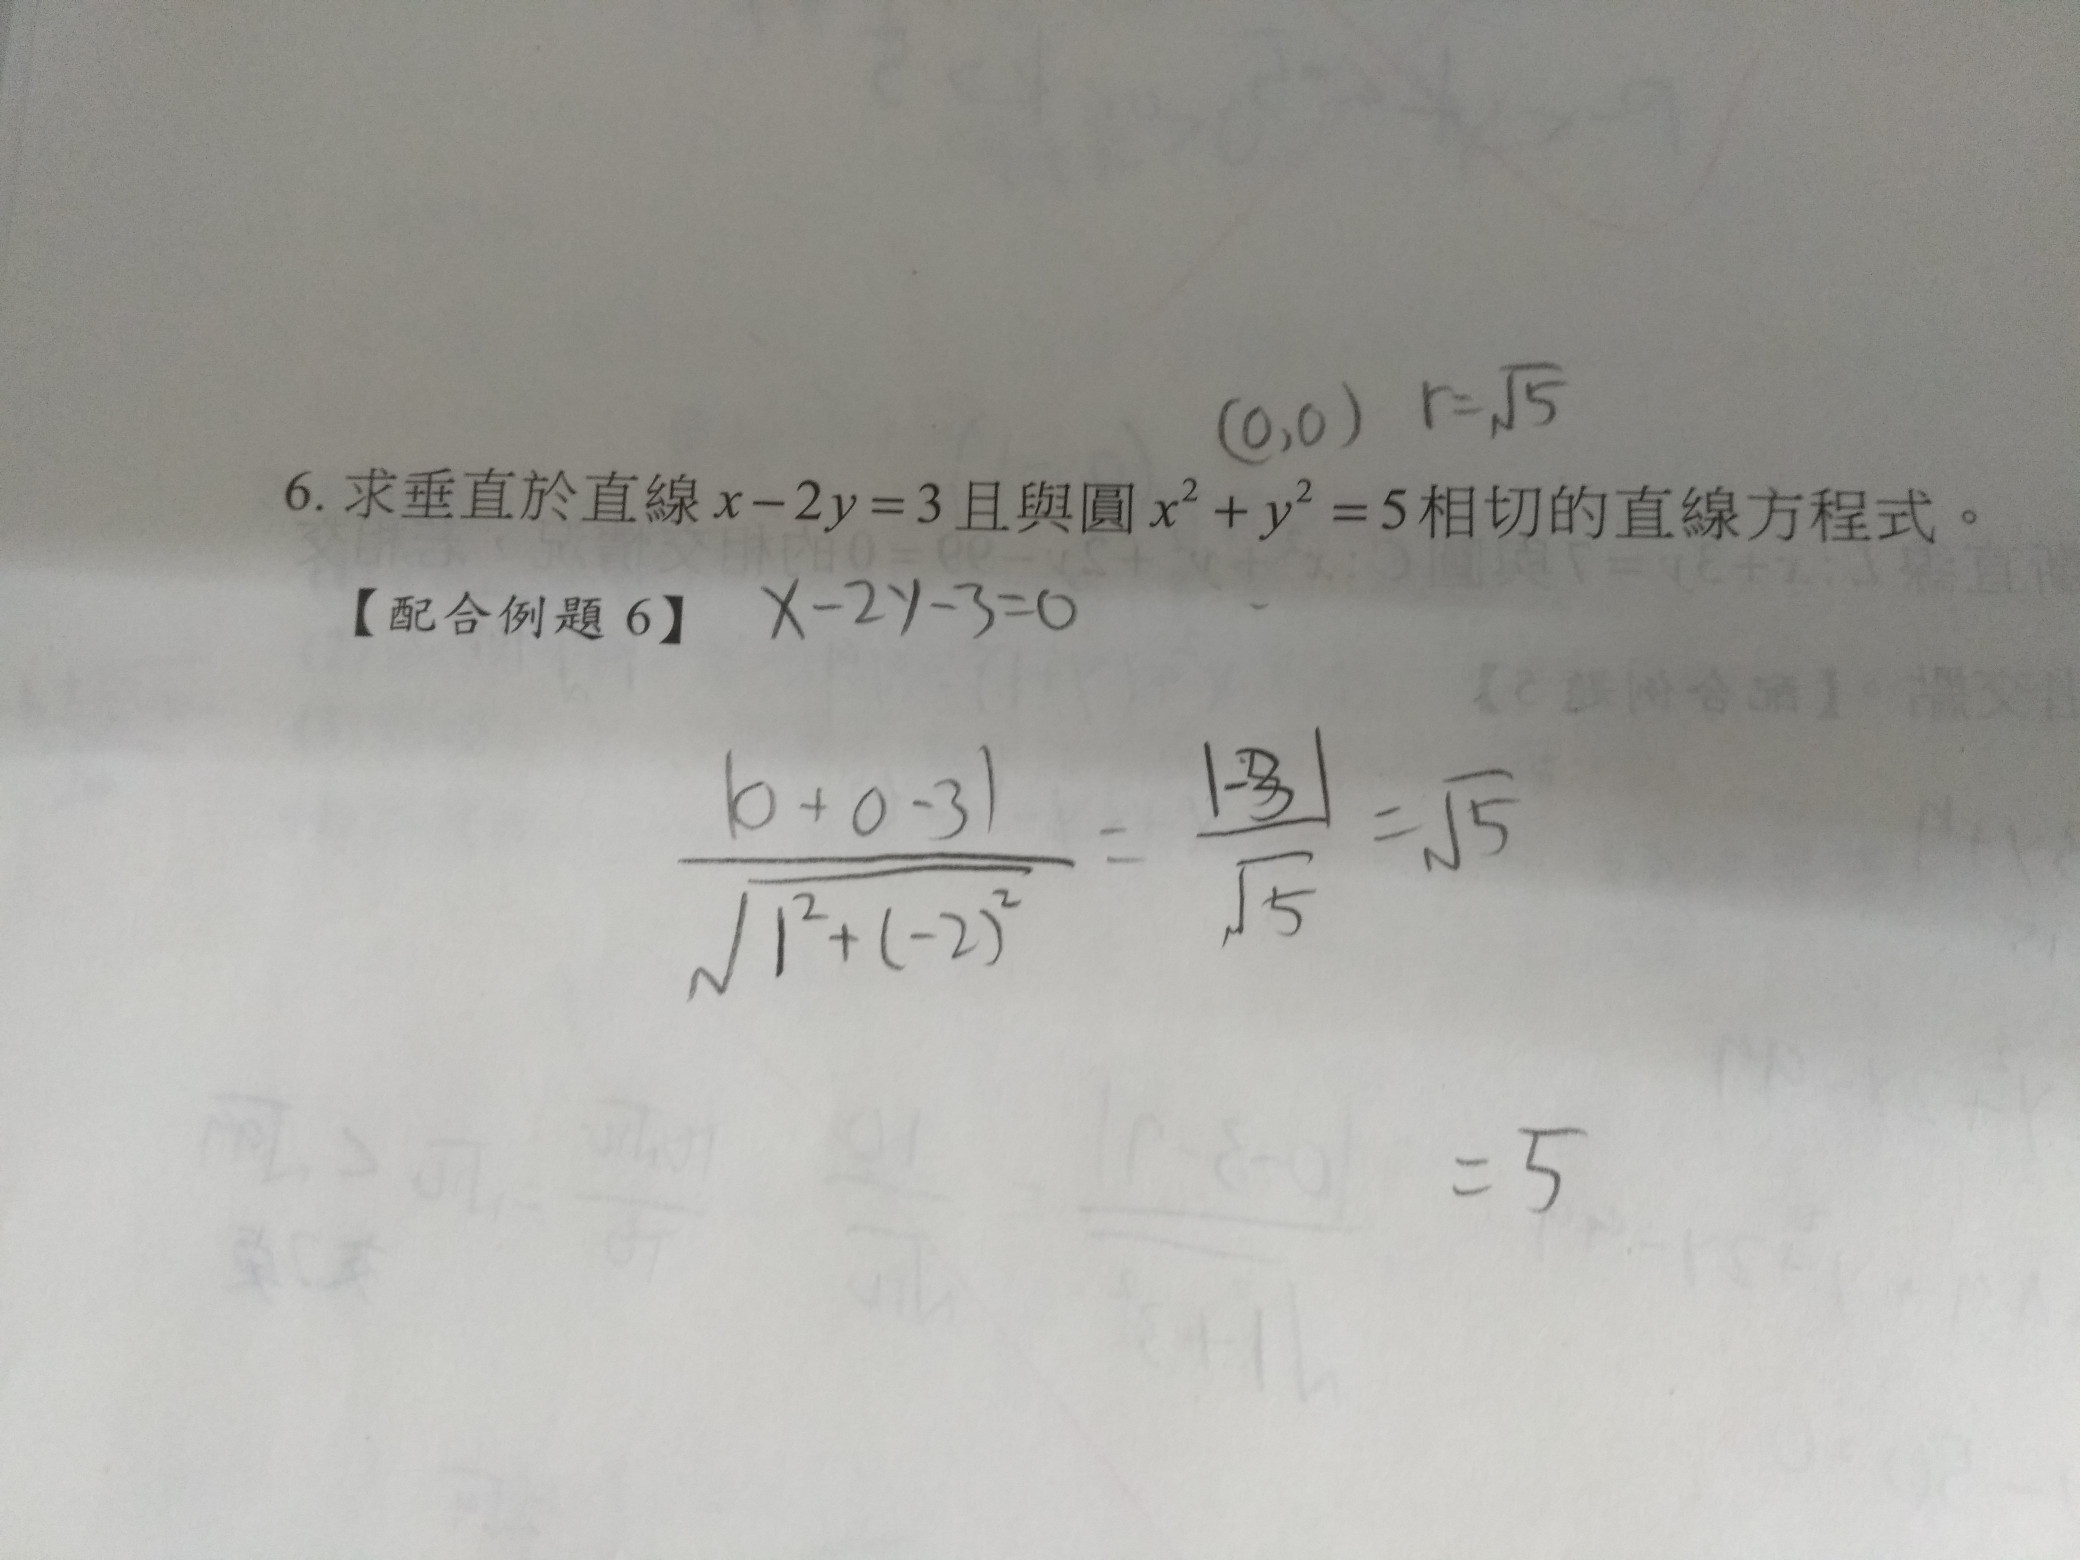 (0,0) r=√5
6. 求垂直於直線 x－2y＝3 且與圓 x²＋y²＝5 相切的直線方程式。
【配合例題 6】 x-2y-3=0
|0+0-3| / √(1²+(-2)²) = |-3| / √5 = √5
= 5